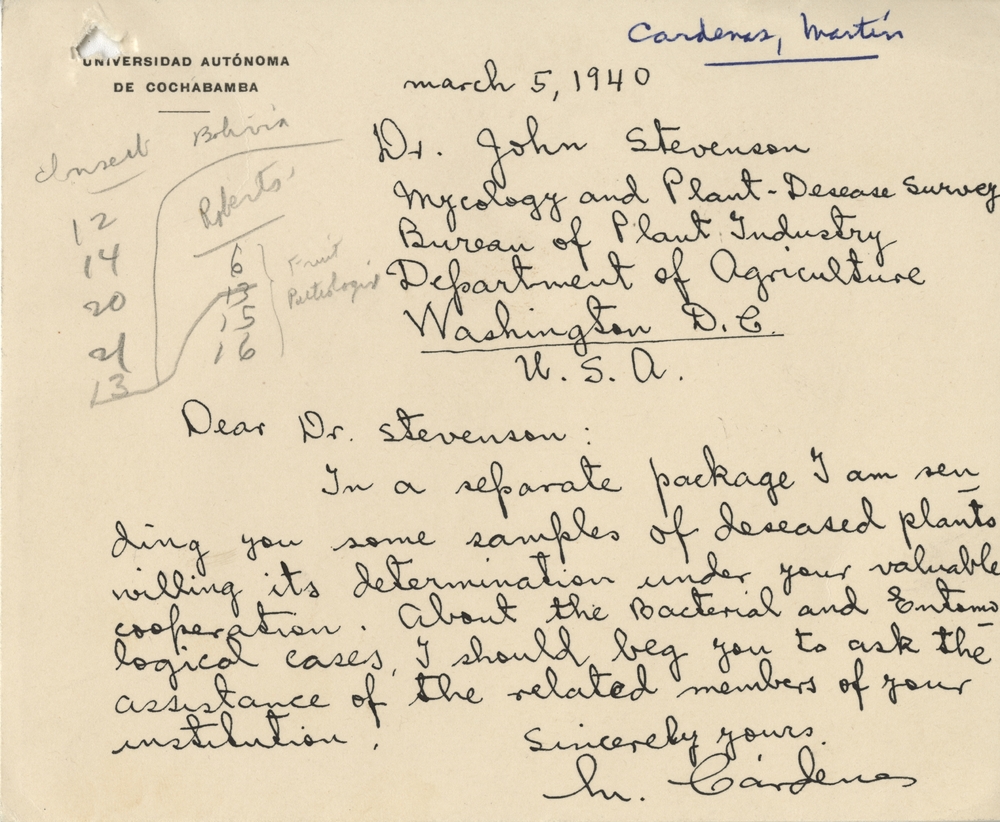 Cardenas, Martín
UNIVERSIDAD AUTÓNOMA
DE COCHABAMBA
march 5, 1940
Insect
12
14
20
21
13
Bolivia
Roberts'
6
13
15
16
Fruit
Dr. John Stevenson
Mycology and Plant-Desease Survey
Bureau of Plant Industry
Department of Agriculture
Washington D.C.
U. S. A.
Dear Dr. Stevenson:
In a separate package I am sen
ding you some samples of deseased plants
willing its determination under your valuable
cooperation. About the Bacterial and Entomo
logical cases, I should beg you to ask the
assistance of the related members of your
institution.
Sincerely yours.
M. Cárdenas